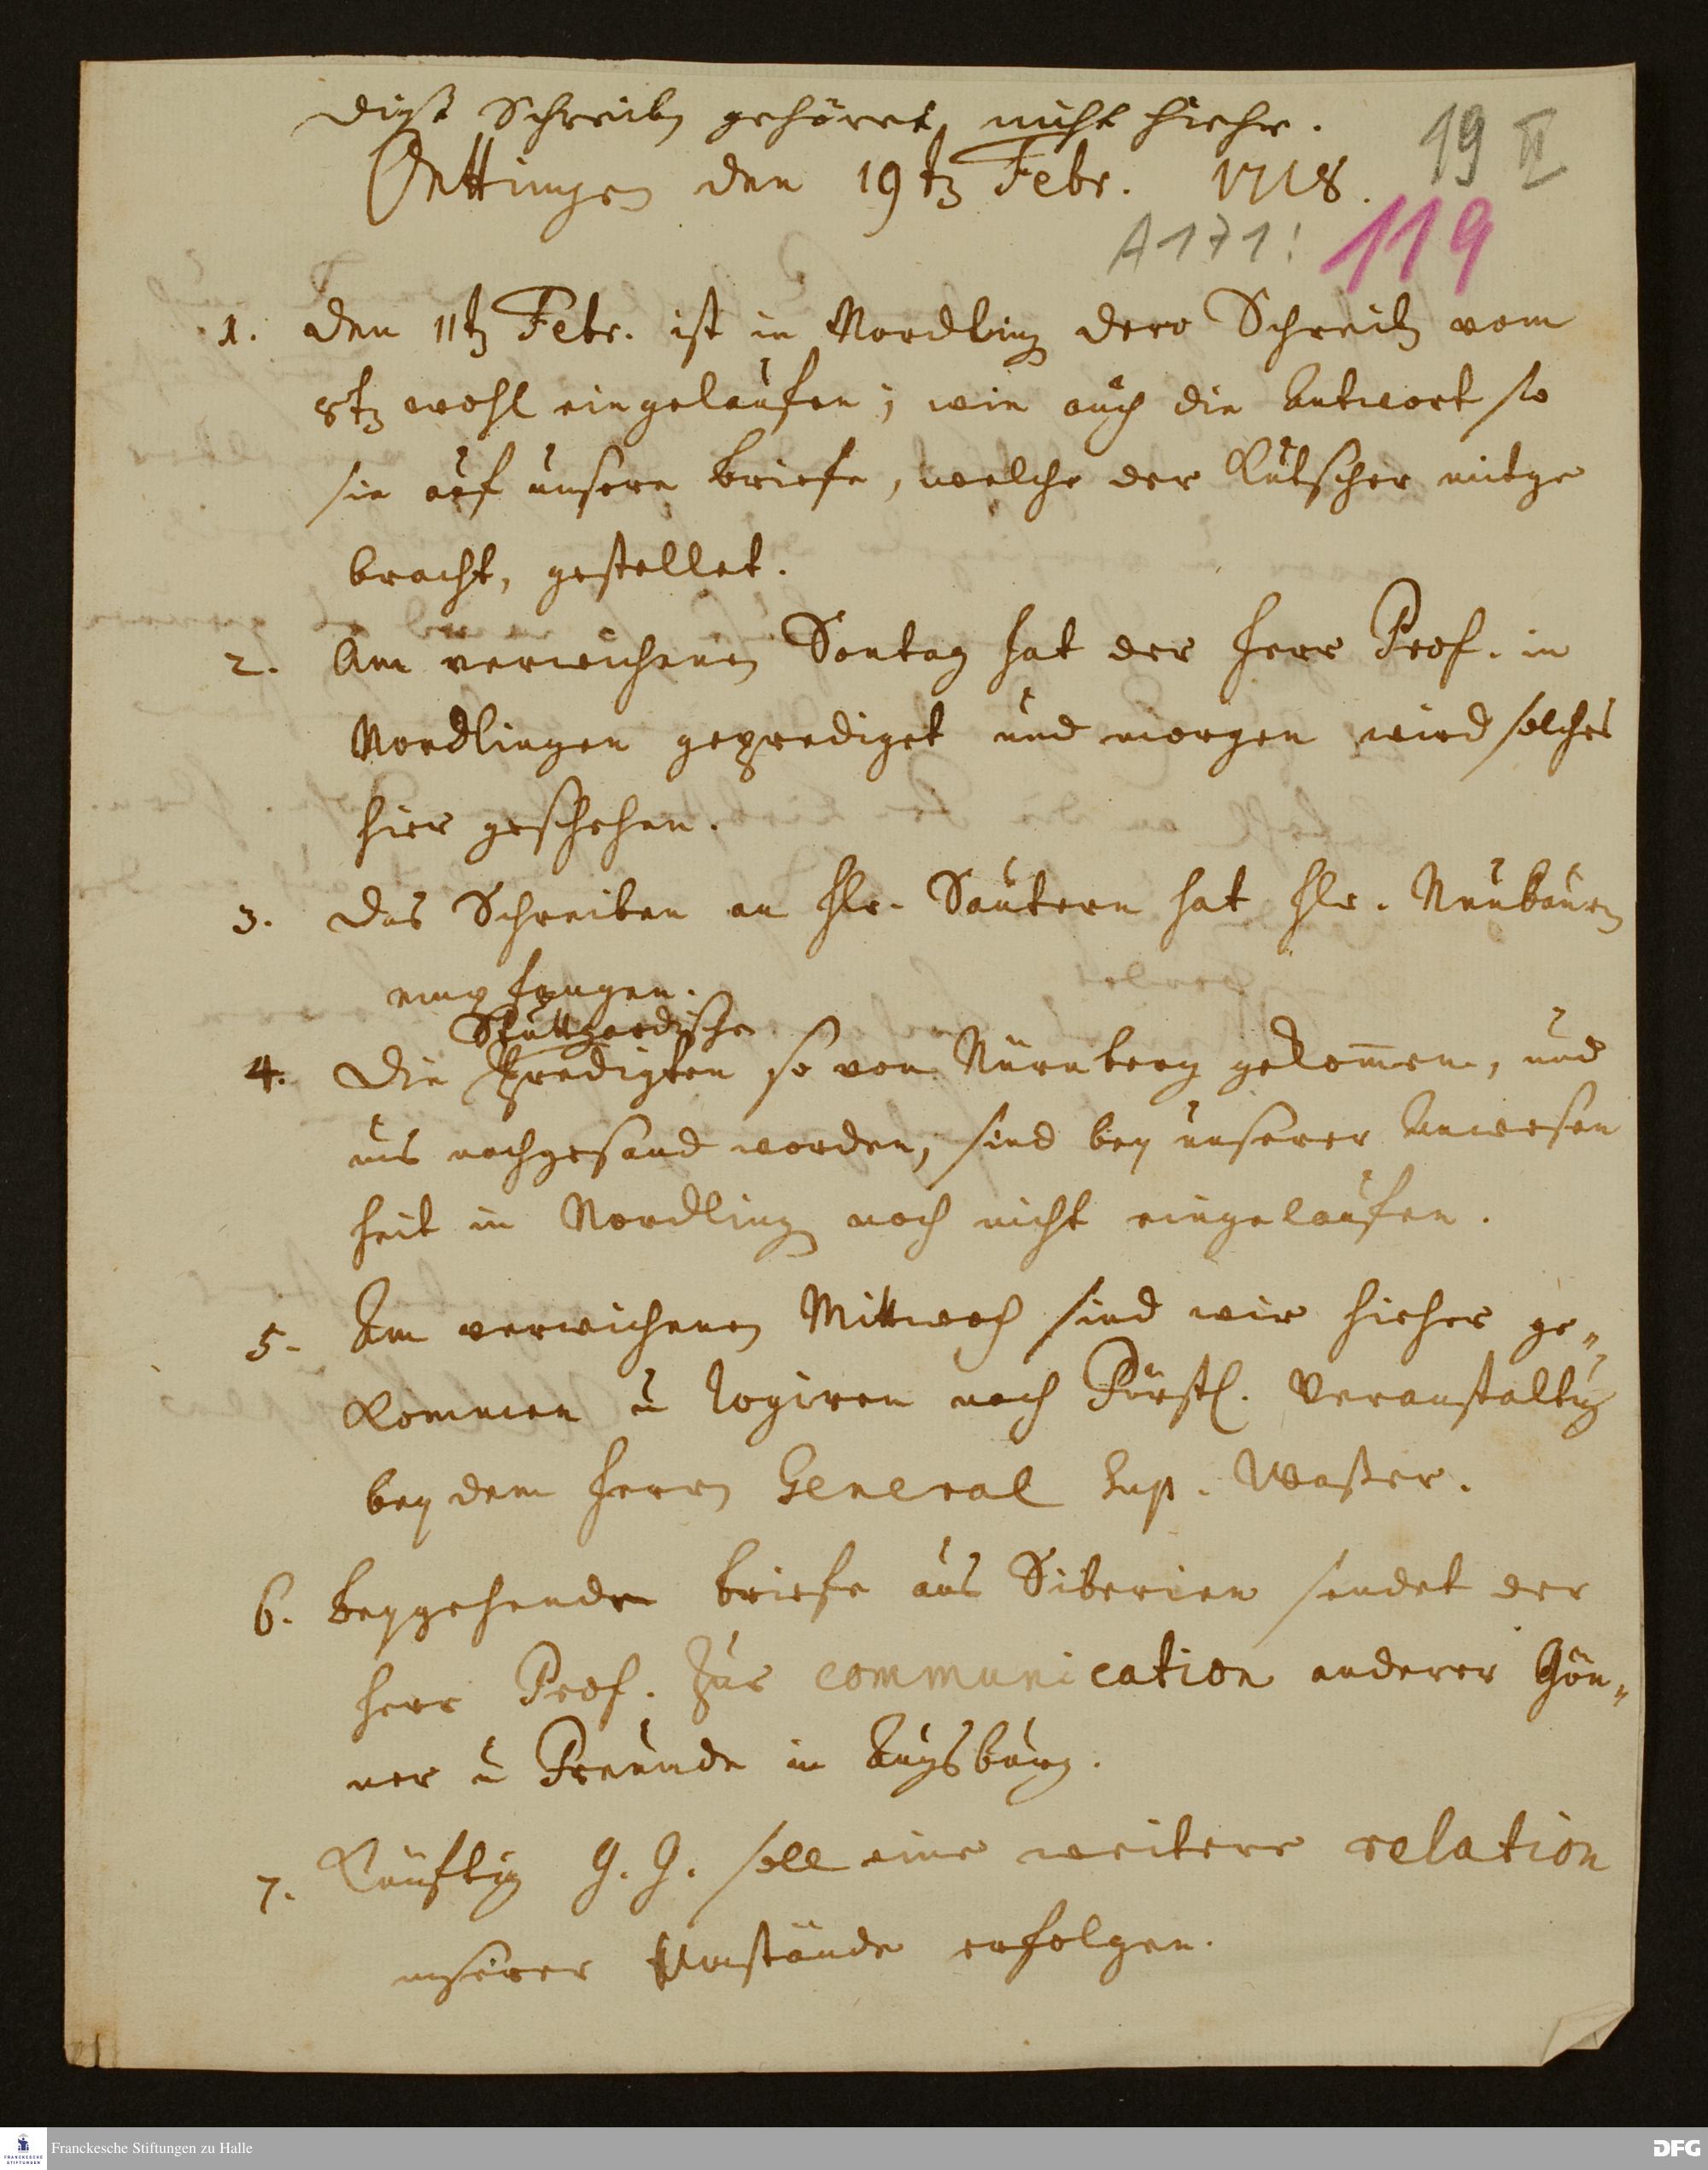 Dieß Schreiben gehöret nicht hieher.
Oettingen den 19ten Febr. 1718.
19 II
A 171: 119
1. Den 11ten Febr. ist in Nördling dero Schreiben vom
8ten wohl eingelauffen; wie auch die Antwort so
sie auf unsere Briefe, welche der Kutscher mitge
bracht, gestellet.
2. Am verwichenen Sontag hat der Herr Prof. in
Nördlingen geprediget und morgen wird solches
hier geschehen.
3. Das Schreiben an Hr. Sautern hat Hr. Neubauer
empfangen.
Stuttgardische
4. Die Predigten so von Nürnberg gekommen, und
uns nachgesand worden, sind bey unserer Anwesen
heit in Nördling noch nicht eingelauffen.
5. Am verwichenen Mittwoch sind wir hieher ge-
kommen u. logiren nach Fürstl. Veranstaltung
bey dem Herrn General Sup. Waßer.
6. Beygehende Briefe aus Siberien sendet der
Herr Prof. zur communication anderer Gön-
ner u Freunde in Augsburg.
7. Künftig G. G. soll eine weitere relation
unserer Umstände erfolgen.
Franckesche Stiftungen zu Halle
DFG